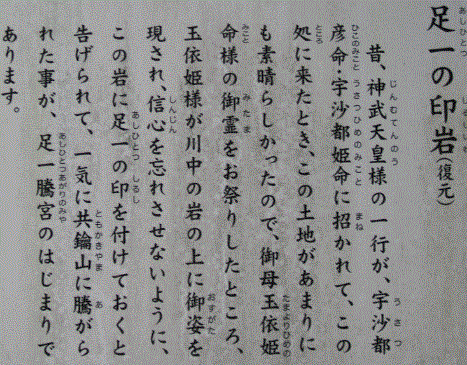 足一の印岩（復元）
昔、神武天皇様の一行が、宇沙都
彦命・宇沙都姫命に招かれて、この
処に来たとき、この土地があまりに
も素晴らしかったので、御母玉依姫
命様の御霊をお祭りしたところ、
玉依姫様が川中の岩の上に御姿を
現され、信心を忘れさせないように、
この岩に足一の印を付けておくと
告げられて、一気に共鑰山に騰がら
れた事が、足一騰宮のはじまりで
あります。